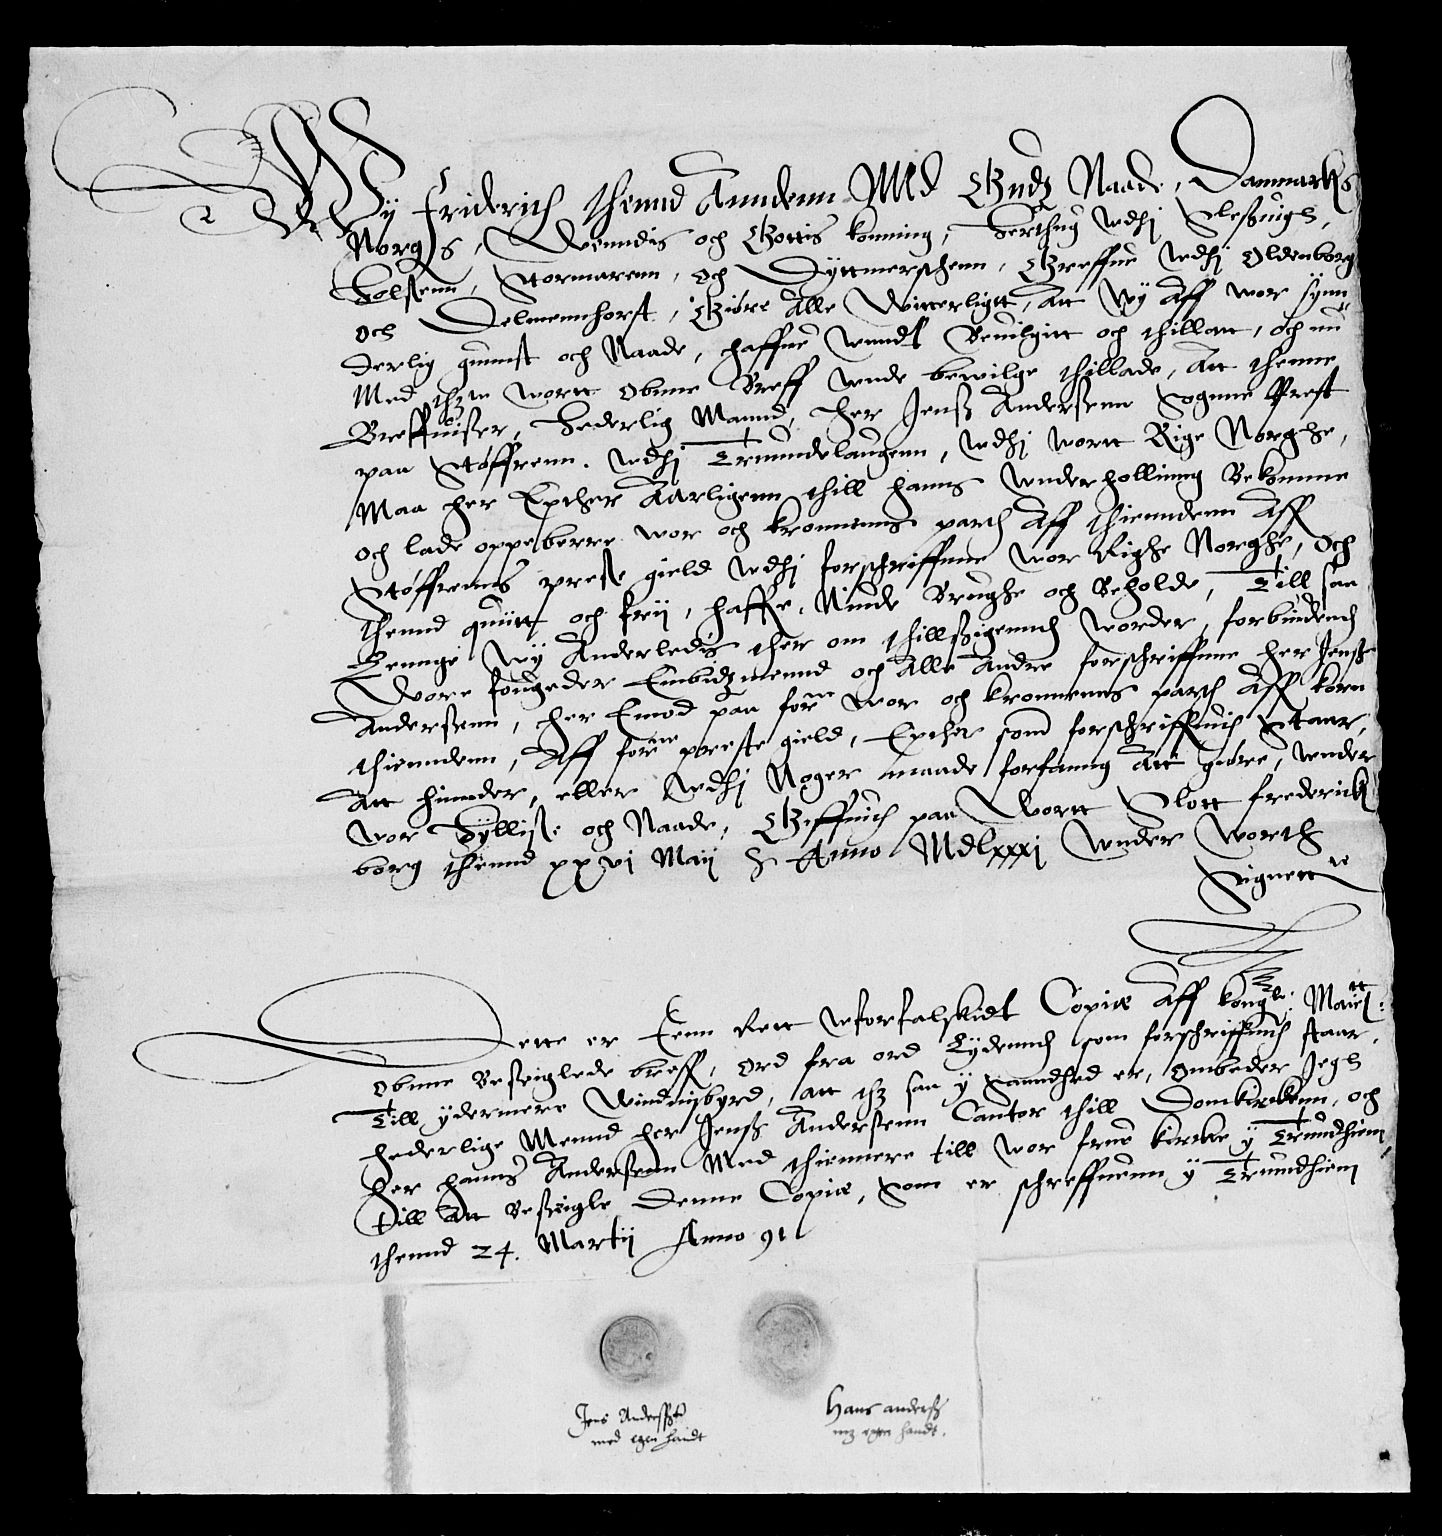 Wy Friderich thend Anndenn Med Gudz Naade, Danmarks
Norgis, Wenndis och Gottis konning, Herthug wdhj Slesuigh,
Holstenn, Stormarenn, och Dyttmerschenn, Greffue wdhj Oldenborg
och Delmennhorst, Giøre Alle Witterligtt, Att wy Aff wor synn
derlig gunnst och Naade, haffue wundt Beuilgitt och thillatt, och nu
Med thette wortt obnne Breff wnde bewilge thillade, Att thenne
Breffuiser, Hederlig Mannd, Her Jenss Anderssenn Sogne Prest
paa Støffrenn, wdhj Trunndelaugenn, wdhj wortt Rige Norghe,
Maa her Epther Aarligenn thill hanns wnderholling Bekomme
och lade oppeberre wor och kronnenns parth Aff thienndenn Aff
Støffrenns preste gield wdhj forschriffne wor Righe Norghe, och
thennd quiitt och frij, haffue, Niude Brughe och Beholde, Till saa
Lennge wy Anderledis ther om thillsigenndh worder, forbiudendh
Wore fougeder Embidzmennd och Alle Andre forschriffne her Jenss
Anderssenn, her Emod paa forne wor och kronnenns parth Aff korn
thienndenn, Aff forne preste gield, Epther som forschriffuit Staar,
Att hinnder, eller wdhj Noger maade forfanng Att giøre, wnder
wor Hylliste och Naade, Geffuit paa Wortt Slott Frederichs
borg thennd xxvi Maij Anno Mdlxxxj Wnder Worth
Signett
Dette er Eenn Rett wforfalskidt Copiæ Aff kong: Maietts:
obnne Beseiglede breff, ord fra ord Lydenndh som forschriffuit staar,
Till ydermere Winndisbyrd, att thz saa y Sanndhed er, ombeder Jegh
hederlige Mennd her Jenss Anderssenn Cantor thill Domkirckenn, och
her Hanns Anderssenn Med thiennere till wor frue kircke y Trundhiem
till Att Beseigle Denne Copiæ, som er schreffuenn y Trundhiem
thennd 24. Martij Anno 91
Jens Anderssøn
med egen handt
Hans anderss
mz egen handt.